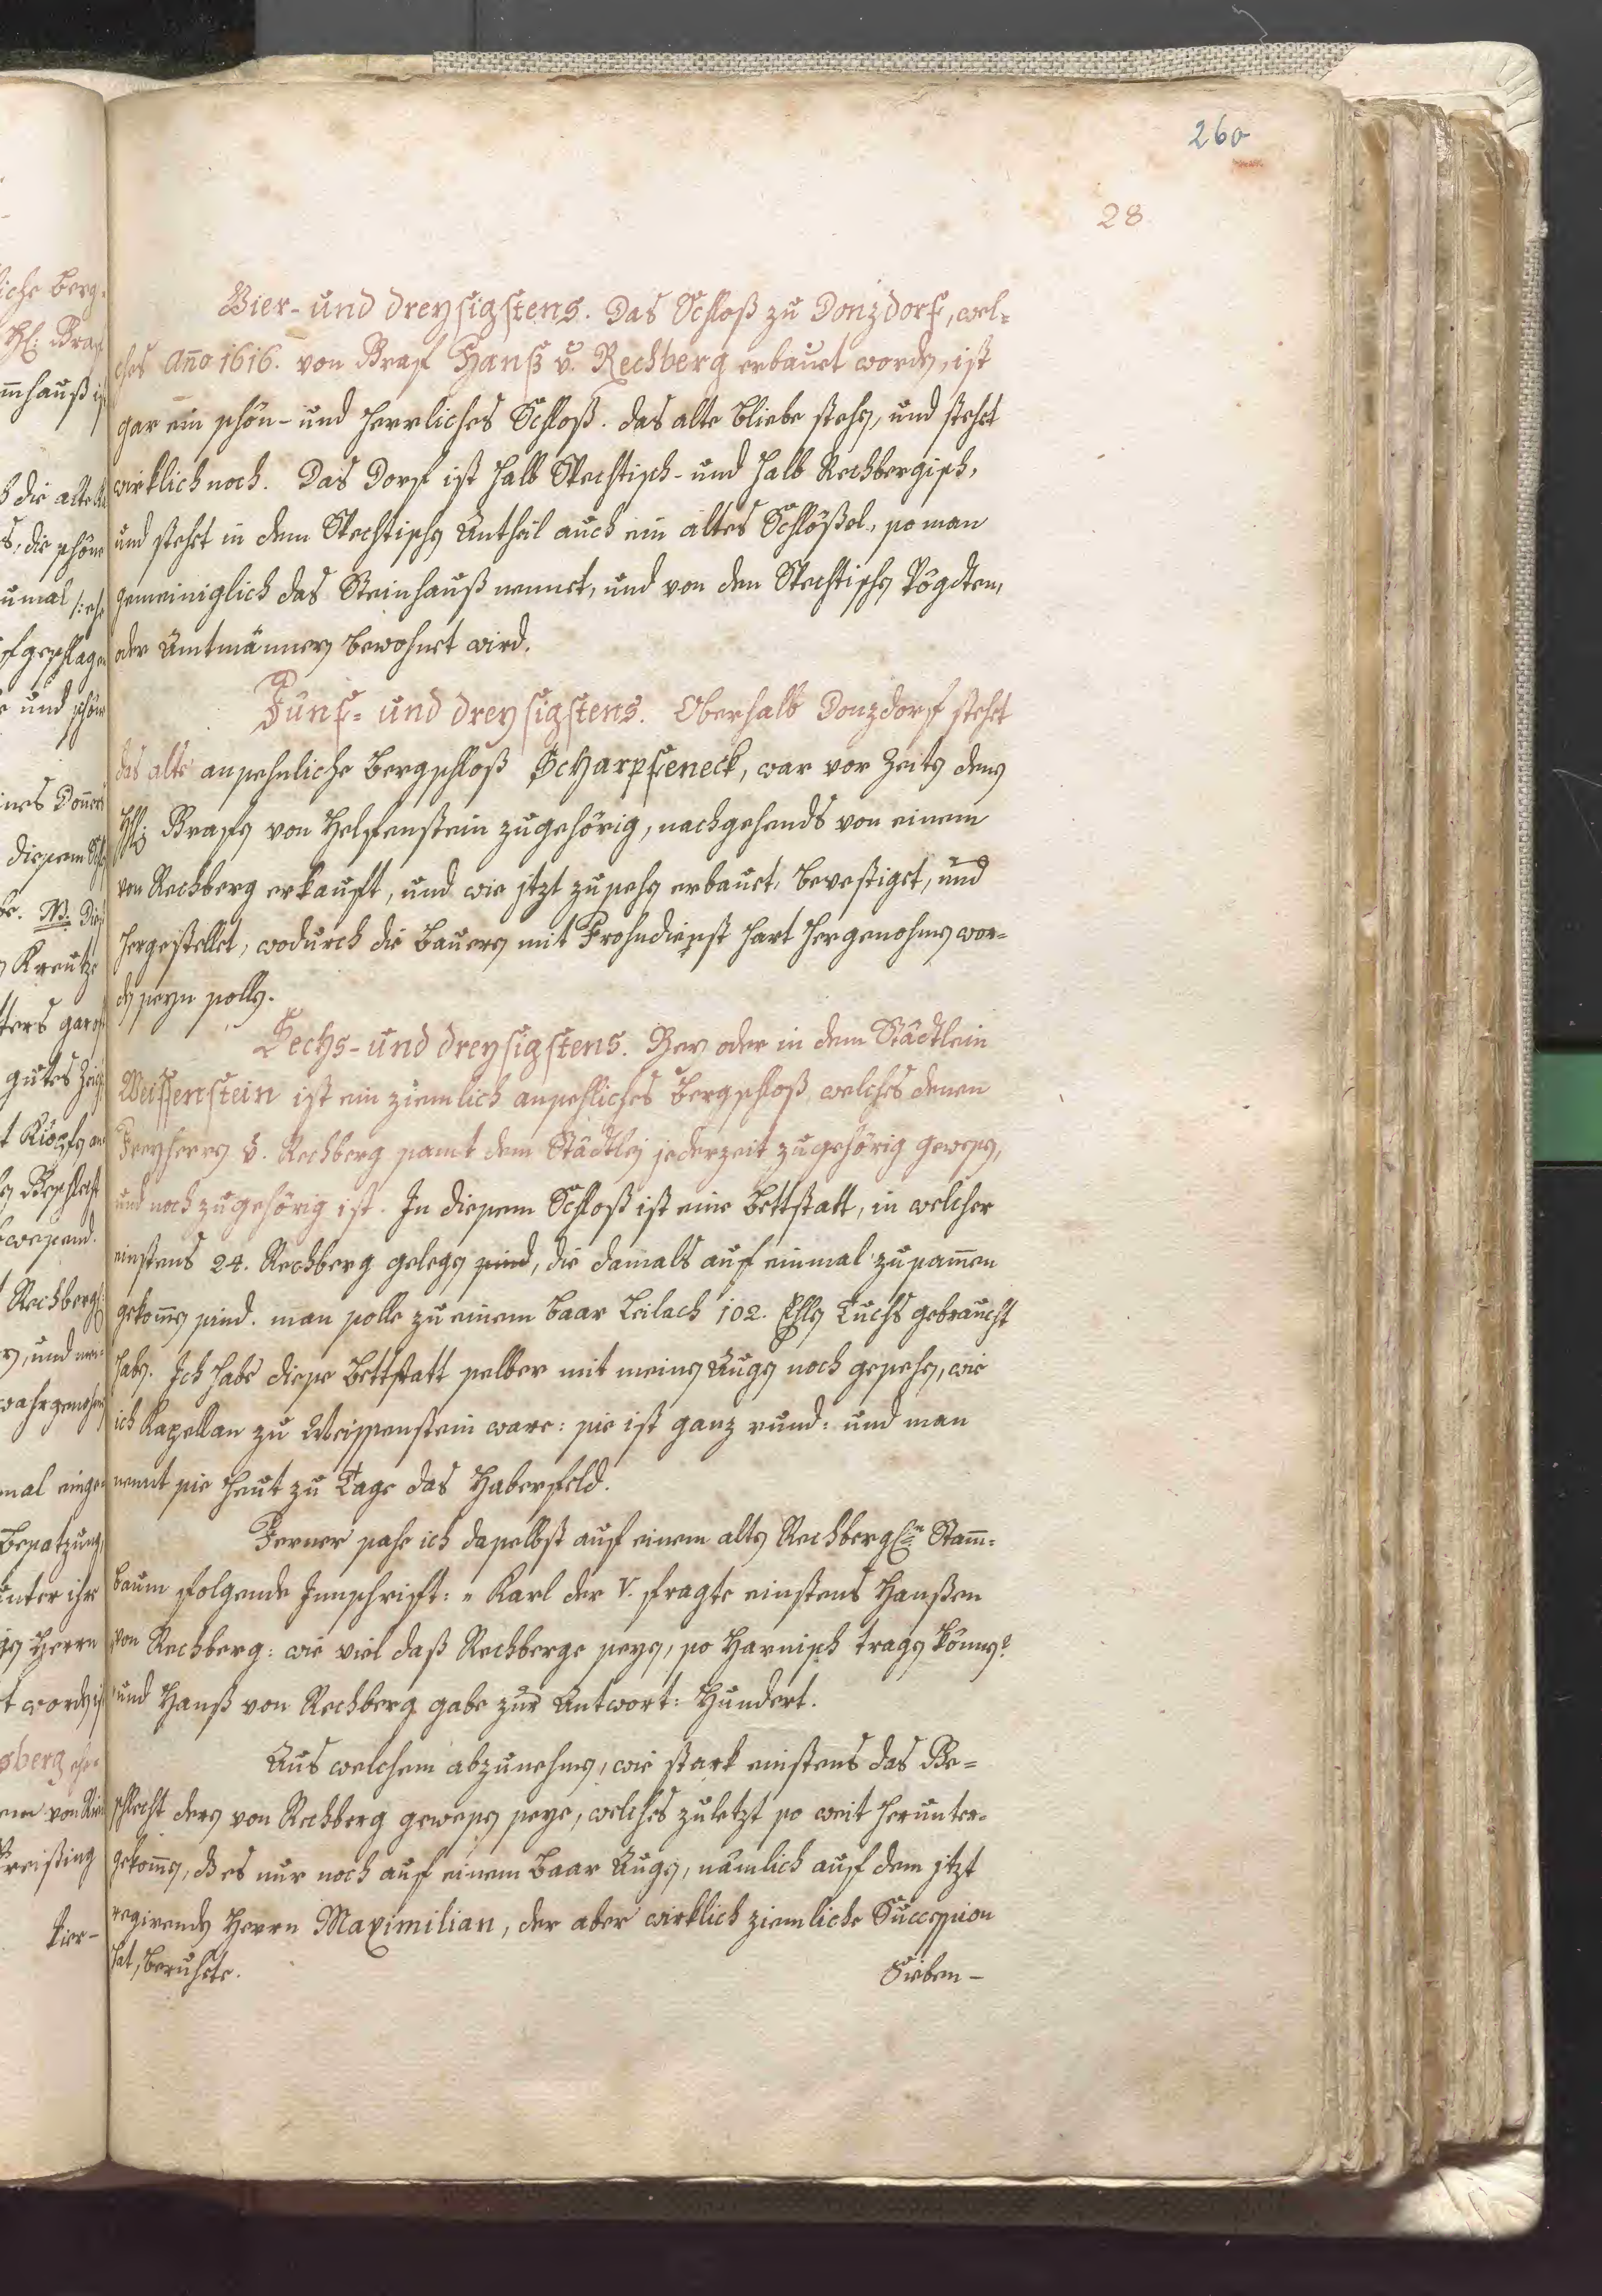 260
28
Vier- und dreysigstens. Das Schloß zu Donzdorf, wel-
ches Anno 1616. von Graf Hanß v. Rechberg erbauet worden, ist
gar ein schön- und herrliches Schloß. das alte bliebe stehen, und stehet
wirklich noch. Das Dorf ist halb Stechtisch- und halb Rechbergisch,
und stehet in dem Stechtischen Antheil auch ein altes Schlößel, so man
gemeiniglich das Steinhauß nennet, und von den Stechtischen Vögdten,
oder Amtmännern bewohnet wird.
Fünf- und dreysigstens. Oberhalb Donzdorf stehet
das alte ansehnliche Bergschloß Scharpfeneck, war vor Zeiten denen
Grafen von Helfenstein zugehörig, nachgehends von einem
von Rechberg erkauft, und wie jtzt zusehen erbauet, bevestiget, und
hergestellet, wodurch die Bauern mit Frohndienst hart hergenohmen wor-
den seyn sollen.
Sechs- und dreysigstens. Bey oder in dem Städtlein
Weissenstein ist ein ziemlich ansehliches Bergschloß, welches denen
Freyherrn v. Rechberg samt dem Städtlein jederzeit zugehörig gewesen,
und noch zugehörig ist. In diesem Schloß ist eine Bettstatt, in welcher
einstens 24. Rechberg gelegen sind, die damals auf einmal zusamen
gekomen sind. man solle zu einem Paar Leilach 102. Ehlen Tuchs gebraucht
haben. Ich habe diese Bettstatt selber mit meinen Augen noch gesehen, wie
ich Kapellan zu Weissenstein ware: sie ist ganz rund: und man
nennt sie heut zu Tage das Haberfeld.
Ferner sahe ich daselbst auf einem alten Rechbergl. Stam-
baum folgende Innschrifft: „ Karl der V. fragte einstens Hanßen
von Rechberg: wie viel daß Rechberge seyen, so Harnisch tragen können?
und Hanß von Rechberg gabe zur Antwort: Hundert.
Aus welchem abzunehmen, wie stark einstens das Ge-
schlecht deren von Rechberg gewesen seye, welches zuletzt so weit herunter-
gekomen, dß es nur noch auf einem Paar Augen, nämlich auf dem jtzt
regirenden Herrn Maximilian, der aber wirklich ziemliche Succession
hat, beruhete.
Sieben-